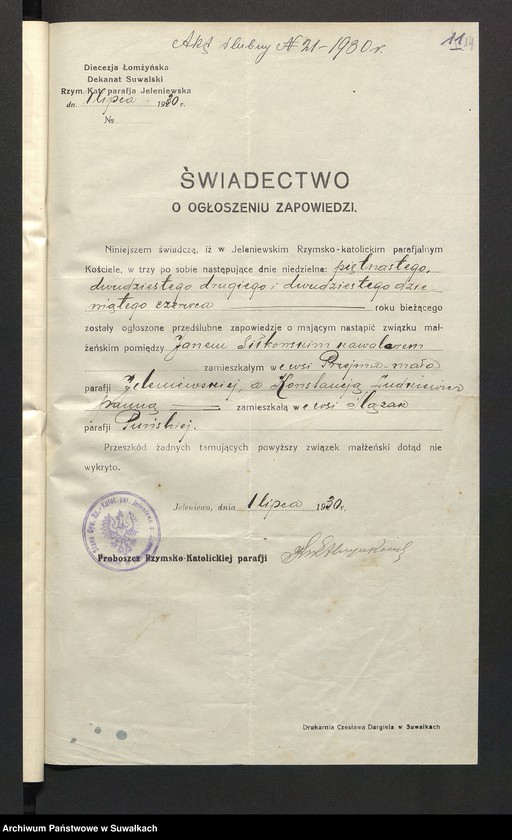 Akt ślubny № 21-1930 r.
11
14
Diecezja Łomżyńska
Dekanat Suwalski
Rzym. Kat. parafja Jeleniewska
dn. 1 lipca 1930 r.
№
ŚWIADECTWO
O OGŁOSZENIU ZAPOWIEDZI.
Niniejszem świadczę, iż w Jeleniewskim Rzymsko-katolickim parafjalnym
Kościele, w trzy po sobie następujące dnie niedzielne: piętnastego,
dwudziestego drugiego i dwudziestego dzie-
wiątego czerwca roku bieżącego
zostały ogloszone przedślubne zapowiedzie o mającym nastąpić związku mał-
żeńskim pomiędzy Janem Sitkowskim kawalerem
zamieszkałym we wsi Prejma-mała
parafji Jeleniewskiej, a Konstancją Ludkiewicz
panną zamieszkałą we wsi Ślązak
parafji Puńskiej.
Przeszkód żadnych tamujących powyższy związek małżeński dotąd nie
wykryto.
Jeleniewo, dnia 1 lipca 1930 r.
Proboszcz Rzymsko-Katolickiej parafji
Drukarnia Czesława Dargiela w Suwałkach
Archiwum Państwowe w Suwałkach